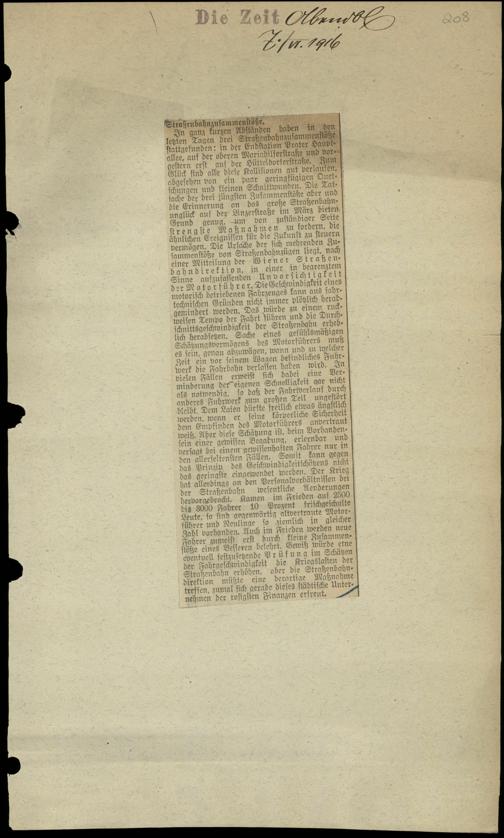 Die Zeit Abendbl
7./VI. 1916
208
Straßenbahnzusammenstöße.
In ganz kurzen Abständen haben in den
letzten Tagen drei Straßenbahnzusammenstöße
stattgefunden: in der Endstation Prater Haupt-
allee, auf der oberen Mariahilferstraße und vor-
gestern erst auf der Hütteldorferstraße. Zum
Glück sind alle diese Kollisionen gut verlaufen,
abgesehen von ein paar geringfügigen Quet-
schungen und kleinen Schnittwunden. Die Tat-
sache der drei jüngsten Zusammenstöße aber und
die Erinnerung an das große Straßenbahn-
unglück auf der Linzerstraße im März bieten
Grund genug, um von zuständiger Seite
strengste Maßnahmen zu fordern, die
ähnlichen Ereignissen für die Zukunft zu steuern
vermögen. Die Ursache der sich mehrenden Zu-
sammenstöße von Straßenbahnzügen liegt, nach
einer Mitteilung der Wiener Straßen-
bahndirektion, in einer in begrenztem
Sinne aufzufassenden Unvorsichtigkeit
der Motorführer. Die Geschwindigkeit eines
motorisch betriebenen Fahrzeuges kann aus fahr-
technischen Gründen nicht immer plötzlich herab-
gemindert werden. Das würde zu einem ruck-
weisen Tempo der Fahrt führen und die Durch-
schnittsgeschwindigkeit der Straßenbahn erheb-
lich herabsetzen. Sache eines gefühlsmäßigen
Schätzungsvermögens des Motorführers muß
es sein, genau abzuwägen, wann und zu welcher
Zeit ein vor seinem Wagen befindliches Fuhr-
werk die Fahrbahn verlassen haben wird. In
vielen Fällen erweist sich dabei eine Ver-
minderung der eigenen Schnelligkeit gar nicht
als notwendig, so daß der Fahrverlauf durch
anderes Fuhrwerk zum großen Teil ungestört
bleibt. Dem Laien dürfte freilich etwas ängstlich
werden, wenn er seine körperliche Sicherheit
dem Empfinden des Motorführers anvertraut
weiß. Aber diese Schätzung ist, beim Vorhanden-
sein einer gewissen Begabung, erlernbar und
versagt bei einem gewissenhaften Fahrer nur in
den allerseltensten Fällen. Somit kann gegen
das Prinzip des Geschwindigkeitschätzens nicht
das geringste eingewendet werden. Der Krieg
hat allerdings an den Personalverhältnissen bei
der Straßenbahn wesentliche Aenderungen
hervorgebracht. Kamen im Frieden auf 2500
bis 3000 Fahrer 10 Prozent frischgeschulte
Leute, so sind gegenwärtig altvertraute Motor-
führer und Neulinge so ziemlich in gleicher
Zahl vorhanden. Auch im Frieden werden neue
Fahrer zumeist erst durch kleine Zusammen-
stöße eines Besseren belehrt. Gewiß würde eine
eventuell festzusetzende Prüfung im Schätzen
der Fahrgeschwindigkeit die Kriegslasten der
Straßenbahn erhöhen, aber die Straßenbahn-
direktion müßte eine derartige Maßnahme
treffen, zumal sich gerade dieses städtische Unter-
nehmen der rosigsten Finanzen erfreut.